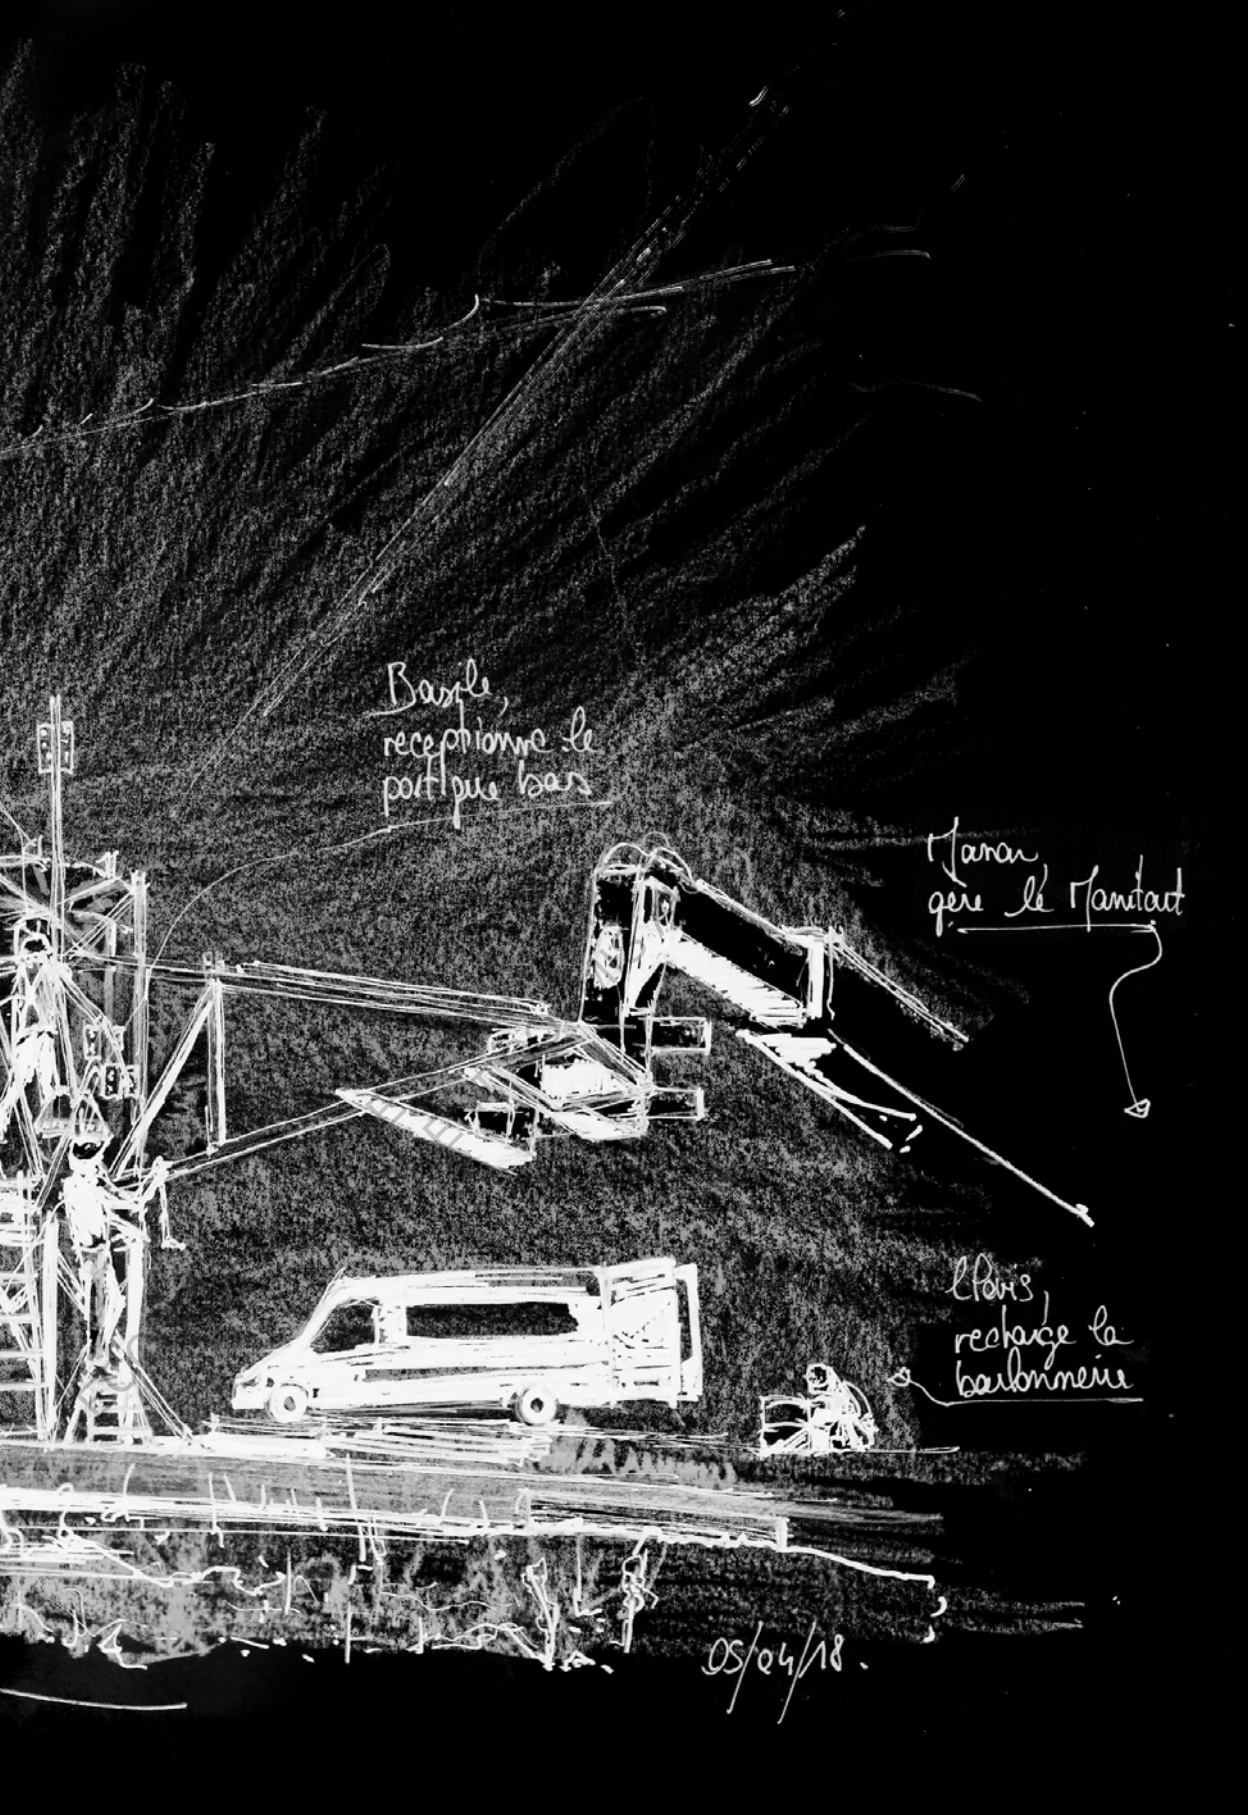 Basile,
receptionne le
portique bas
Manon,
gère le Manitout
Clovis,
recharge la
boulonnerie
05/04/18.